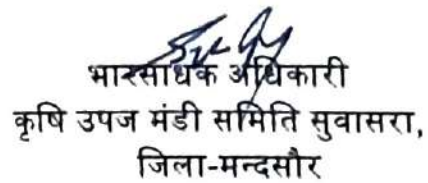 भारसाधक अधिकारी
कृषि उपज मंडी समिति सुवासरा,
जिला-मन्दसौर